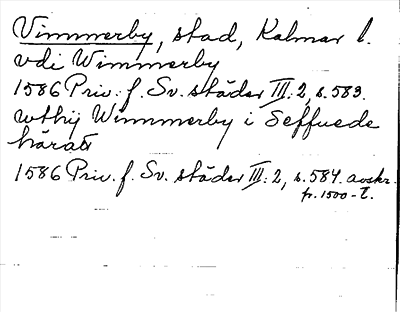 Vimmerby, stad, Kalmar l.
vdi Wimmerby
1586 Priv. f. Sv. städer III: 2, s. 583.
wthij Wimmerby i Seffuede
härat
1586 Priv. f. Sv. städer III: 2, s. 584. avskr.
fr. 1500-t.